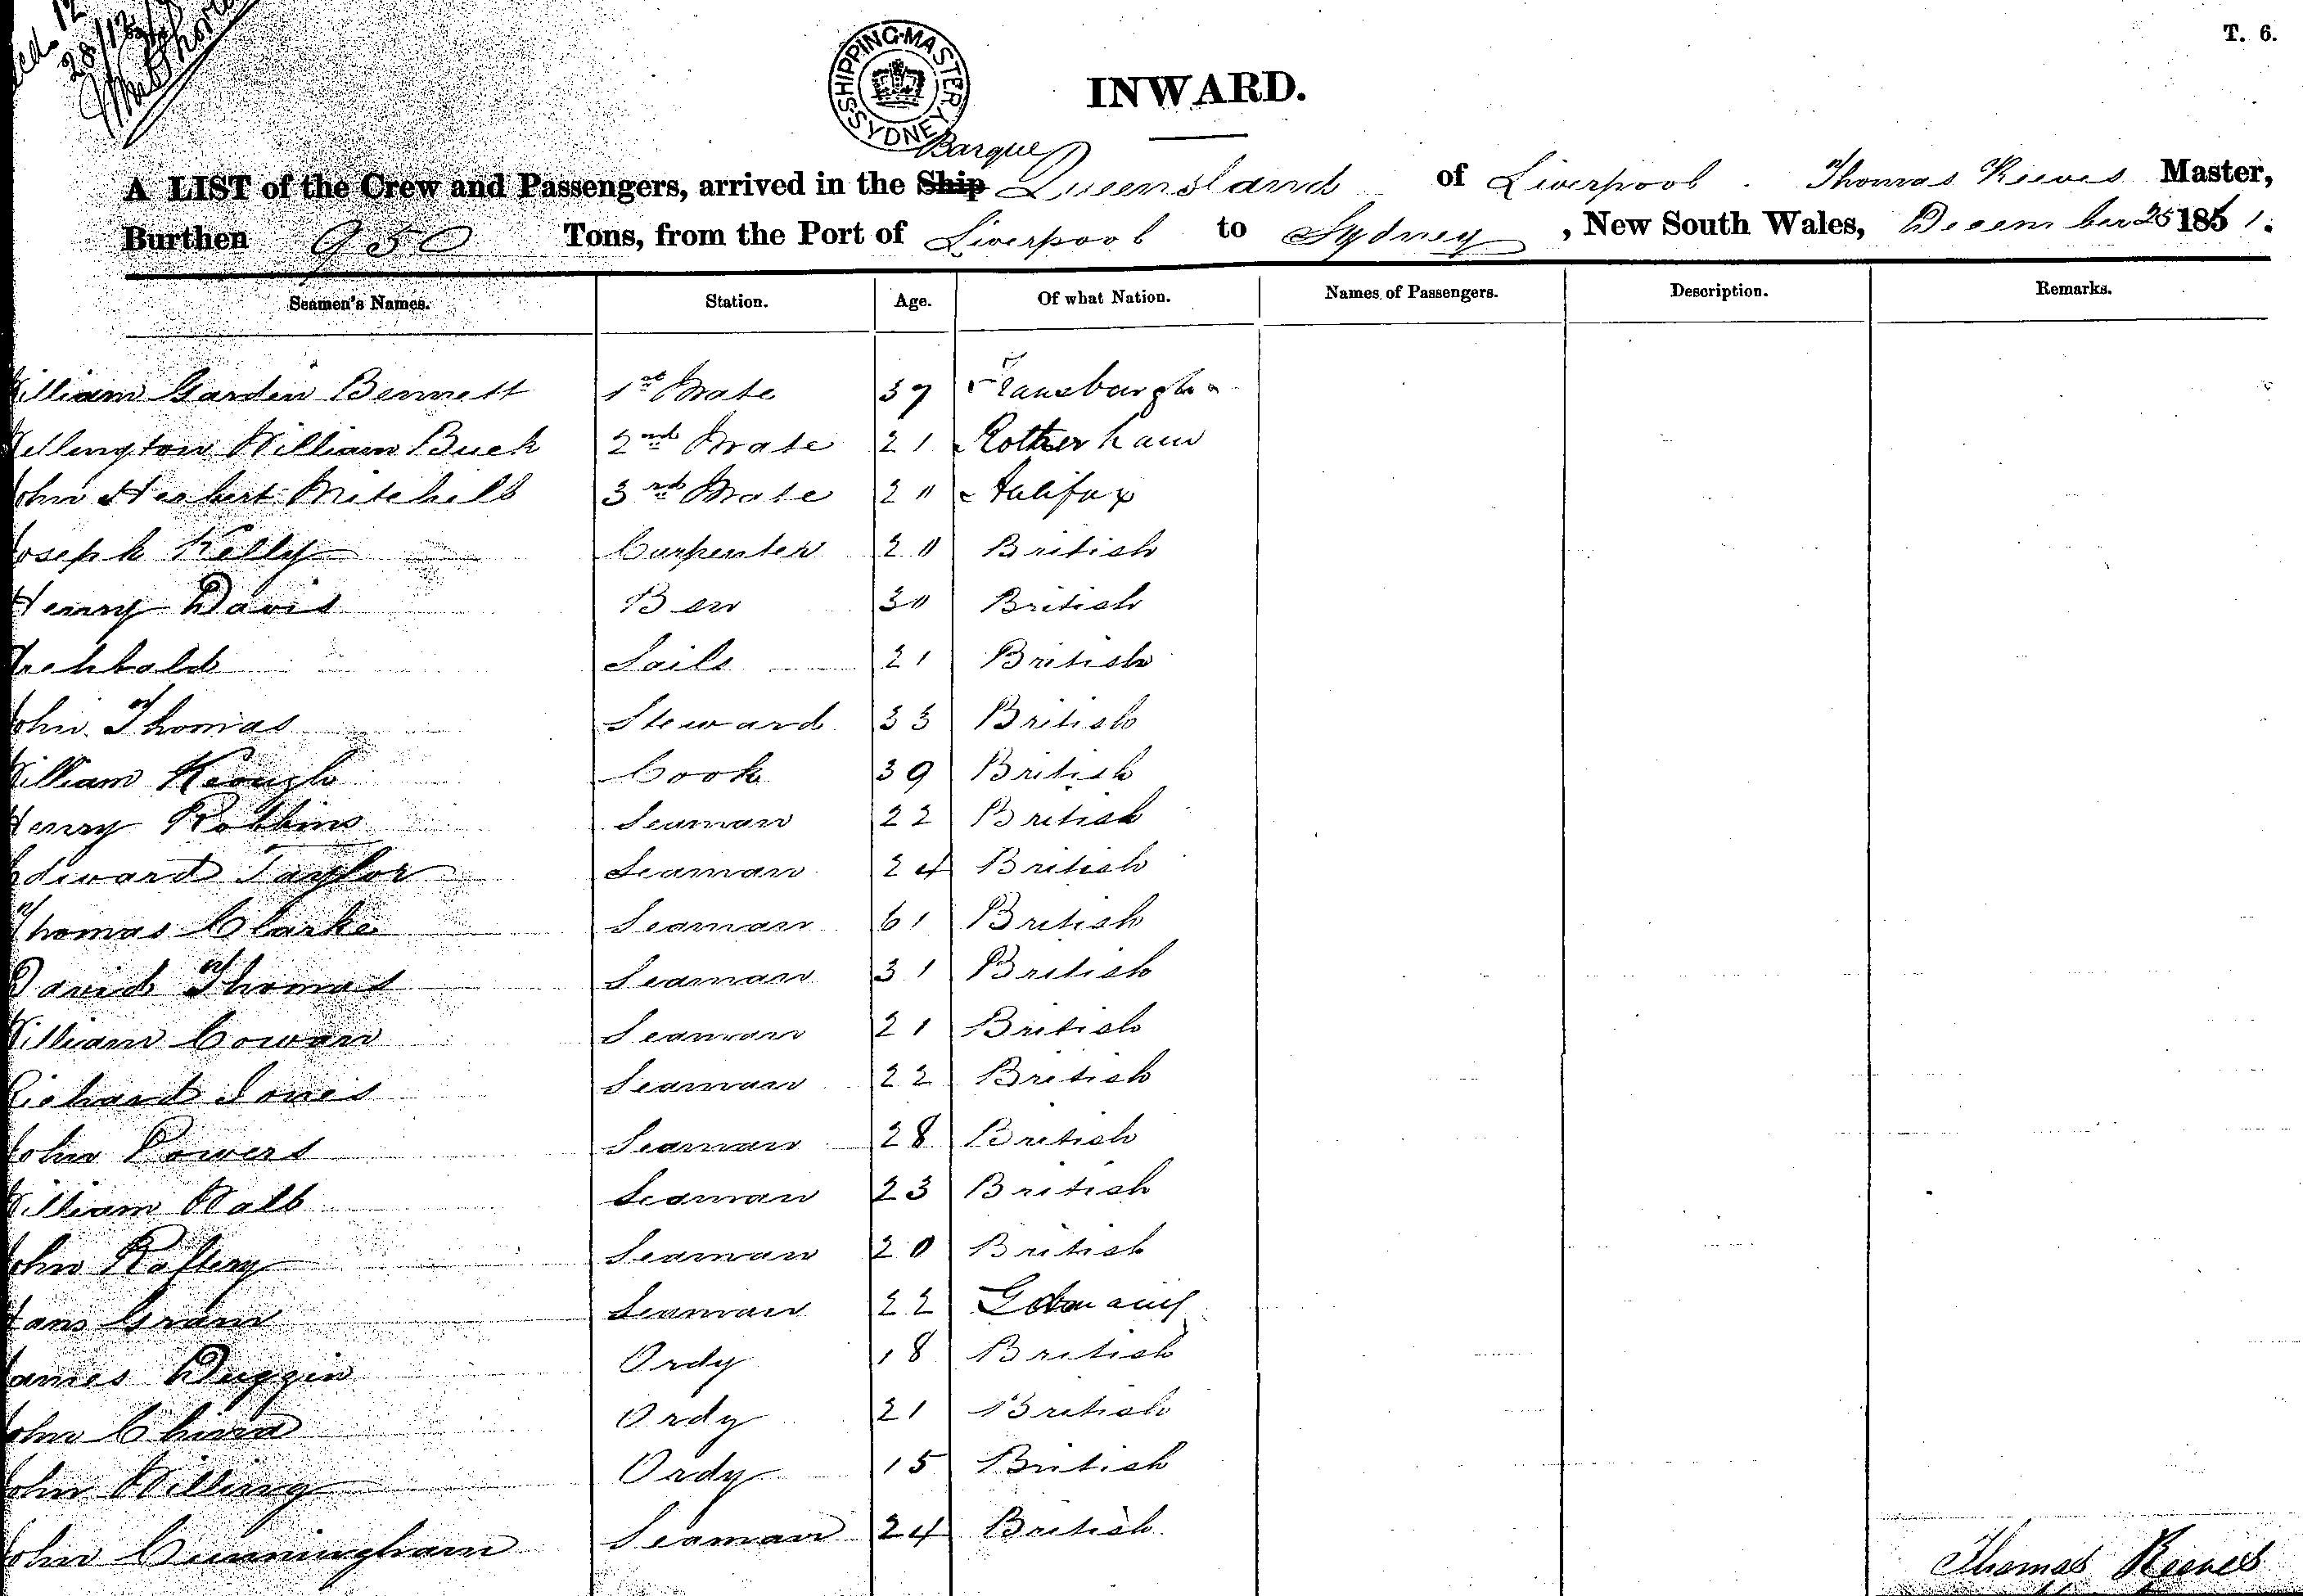 T. 6.
SHIPPING MASTER SYDNEY
INWARD.
Barque
A LIST of the Crew and Passengers, arrived in the Ship Queensland of Liverpool. Thomas Reeves Master,
Burthen 950 Tons, from the Port of Liverpool to Sydney, New South Wales, December 25 1861.
Seamen's Names. Station. Age. Of what Nation. Names of Passengers. Description. Remarks.
William Garden Bennett 1st Mate 37
Wellington William Buck 2nd Mate 21 Rotherham
John Herbert Mitchell 3rd Mate 20 Halifax
Joseph Kelly Carpenter 20 British
Henry Davis 30 British
Sails 21 British
John Thomas Steward 33 British
William Keough Cook 39 British
Henry Robbins Seaman 22 British
Edward Taylor Seaman 24 British
Thomas Clarke Seaman 61 British
David Thomas Seaman 31 British
William Cowan Seaman 21 British
Richard Jones Seaman 22 British
John Powers Seaman 28 British
William Seaman 23 British
John Raftery Seaman 20 British
Hans Gram Seaman 22 Germany
James Duggin Ordy 18 British
John Ordy 21 British
John Willing Ordy 15 British
John Cunningham Seaman 24 British
Thomas Reeves